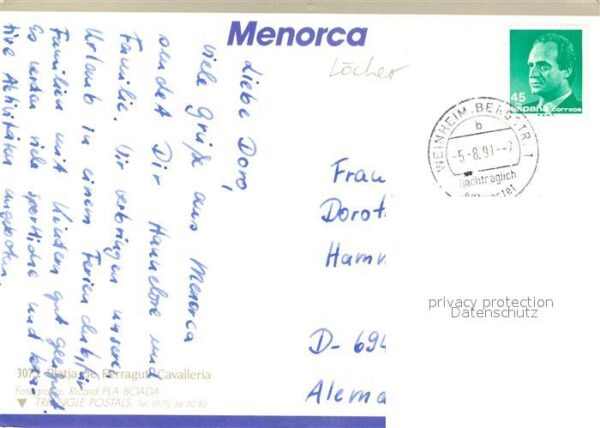 Menorca
Löcher
45
España correos
WEINHEIM, BERGSTR. 1
b
-5.-8.91--7
nachträglich
entwertet
Liebe Doro,
viele Grüße aus Menorca
sendet Dir Hannelore mit
Familie. Wir verbringen unseren
Urlaub in einem Ferienclub für
Familien mit Kindern gut geeignet.
Es werden viele sportliche und krea-
tive Aktivitäten angeboten.
Frau
Dorot
Hamm
D-694
Alema
privacy protection
Datenschutz
3072 Platja de Ferragut. Cavalleria
Fotografia: Ricard PLA BOADA
TRIANGLE POSTALS. Tel. (971) 36 30 82